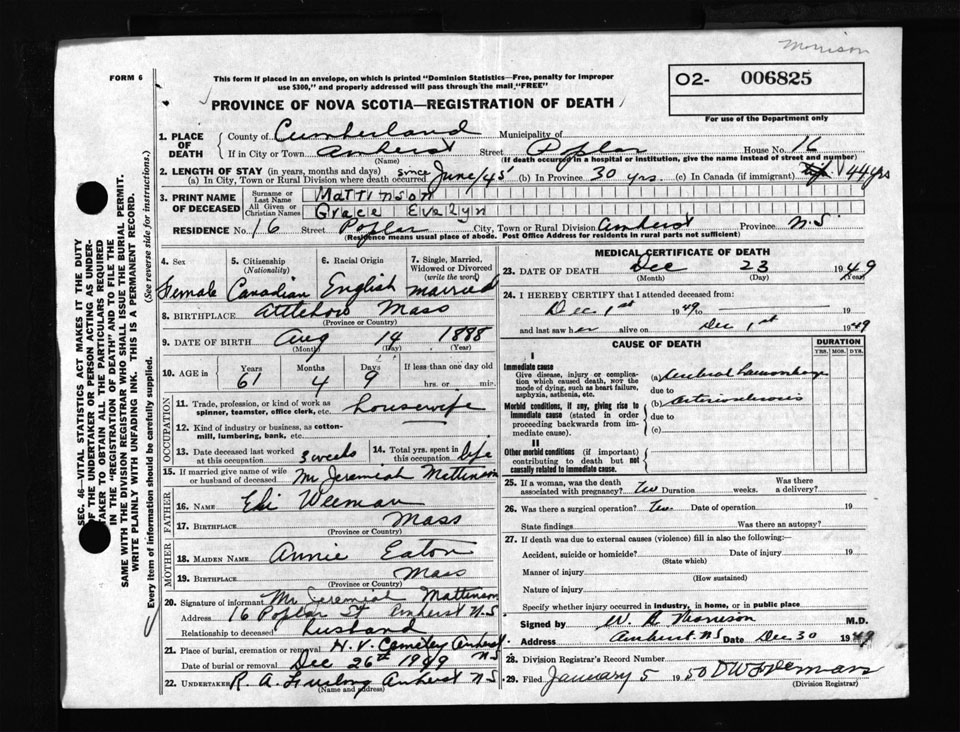 Morrison
FORM 6
This form if placed in an envelope, on which is printed "Dominion Statistics—Free, penalty for improper
use $300," and properly addressed will pass through the mail "FREE"
O2- 006825
For use of the Department only
PROVINCE OF NOVA SCOTIA—REGISTRATION OF DEATH
1. PLACE OF DEATH County of Cumberland Municipality of
If in City or Town Amherst Street Poplar House No. 16
(Name) (If death occurred in a hospital or institution, give the name instead of street and number)
2. LENGTH OF STAY (in years, months and days)
(a) In City, Town or Rural Division where death occurred since June/45 (b) In Province 30 yrs. (c) In Canada (if immigrant) 44 yrs
3. PRINT NAME OF DECEASED Surname or Last Name Mattinson
All Given or Christian Names Grace Evelyn
RESIDENCE No. 16 Street Poplar City, Town or Rural Division Amherst Province N.S
(Residence means usual place of abode. Post Office Address for residents in rural parts not sufficient)
4. Sex 5. Citizenship (Nationality) 6. Racial Origin 7. Single, Married, Widowed or Divorced (write the word)
Female Canadian English Married
8. BIRTHPLACE Mass
(Province or Country)
9. DATE OF BIRTH Aug 14 1888
(Month) (Day) (Year)
10. AGE in Years Months Days If less than one day old
61 4 9 hrs. or min.
OCCUPATION
11. Trade, profession, or kind of work as spinner, teamster, office clerk, etc. Housewife
12. Kind of industry or business, as cotton-mill, lumbering, bank, etc.
13. Date deceased last worked at this occupation 3 weeks 14. Total yrs. spent in this occupation life
15. If married give name of wife or husband of deceased Mr Jeremiah Mattinson
FATHER
16. NAME Weeman
17. BIRTHPLACE Mass
MOTHER
18. MAIDEN NAME Annie Eaton
19. BIRTHPLACE Mass
(Province or Country)
20. Signature of informant Mr Jeremiah Mattinson
Address 16 Poplar St Amherst N.S
Relationship to deceased husband
21. Place of burial, cremation or removal H. V. Cemetey Amherst NS
Date of burial or removal Dec 26th 1949
22. UNDERTAKER R. A. Furlong Amherst N S
(Name and address)
MEDICAL CERTIFICATE OF DEATH
23. DATE OF DEATH Dec 23 1949
(Month) (Day) (Year)
24. I HEREBY CERTIFY that I attended deceased from:
Dec 1st 1949 to 19
and last saw her alive on Dec 1st 1949
CAUSE OF DEATH DURATION
YRS. MOS. DYS.
I
Immediate cause
Give disease, injury or complication which caused death, NOT the mode of dying, such as heart failure, asphyxia, asthenia, etc.
(a) haemorrhage
due to
Morbid conditions, if any, giving rise to immediate cause (stated in order proceeding backwards from immediate cause).
(b) Arteriosclerosis
due to
(c)
II
Other morbid conditions (if important) contributing to death but not causally related to immediate cause.
25. If a woman, was the death associated with pregnancy? Duration weeks. Was there a delivery?
26. Was there a surgical operation? Date of operation 19
State findings Was there an autopsy?
27. If death was due to external causes (violence) fill in also the following:
Accident, suicide or homicide? Date of injury 19
(State which)
Manner of injury
(How sustained)
Nature of injury
Specify whether injury occurred in industry, in home, or in public place
Signed by Morrison M.D.
Address Amherst NS Date Dec 30 1949
28. Division Registrar's Record Number
29. Filed January 5 1950
(Division Registrar)
SEC. 46—VITAL STATISTICS ACT MAKES IT THE DUTY
OF THE UNDERTAKER OR PERSON ACTING AS UNDERTAKER
TO OBTAIN ALL THE PARTICULARS REQUIRED
IN THE "REGISTRATION OF DEATH" AND TO FILE THE
SAME WITH THE DIVISION REGISTRAR WHO SHALL ISSUE THE BURIAL PERMIT.
WRITE PLAINLY WITH UNFADING INK. THIS IS A PERMANENT RECORD.
Every item of information should be carefully supplied. (See reverse side for instructions.)